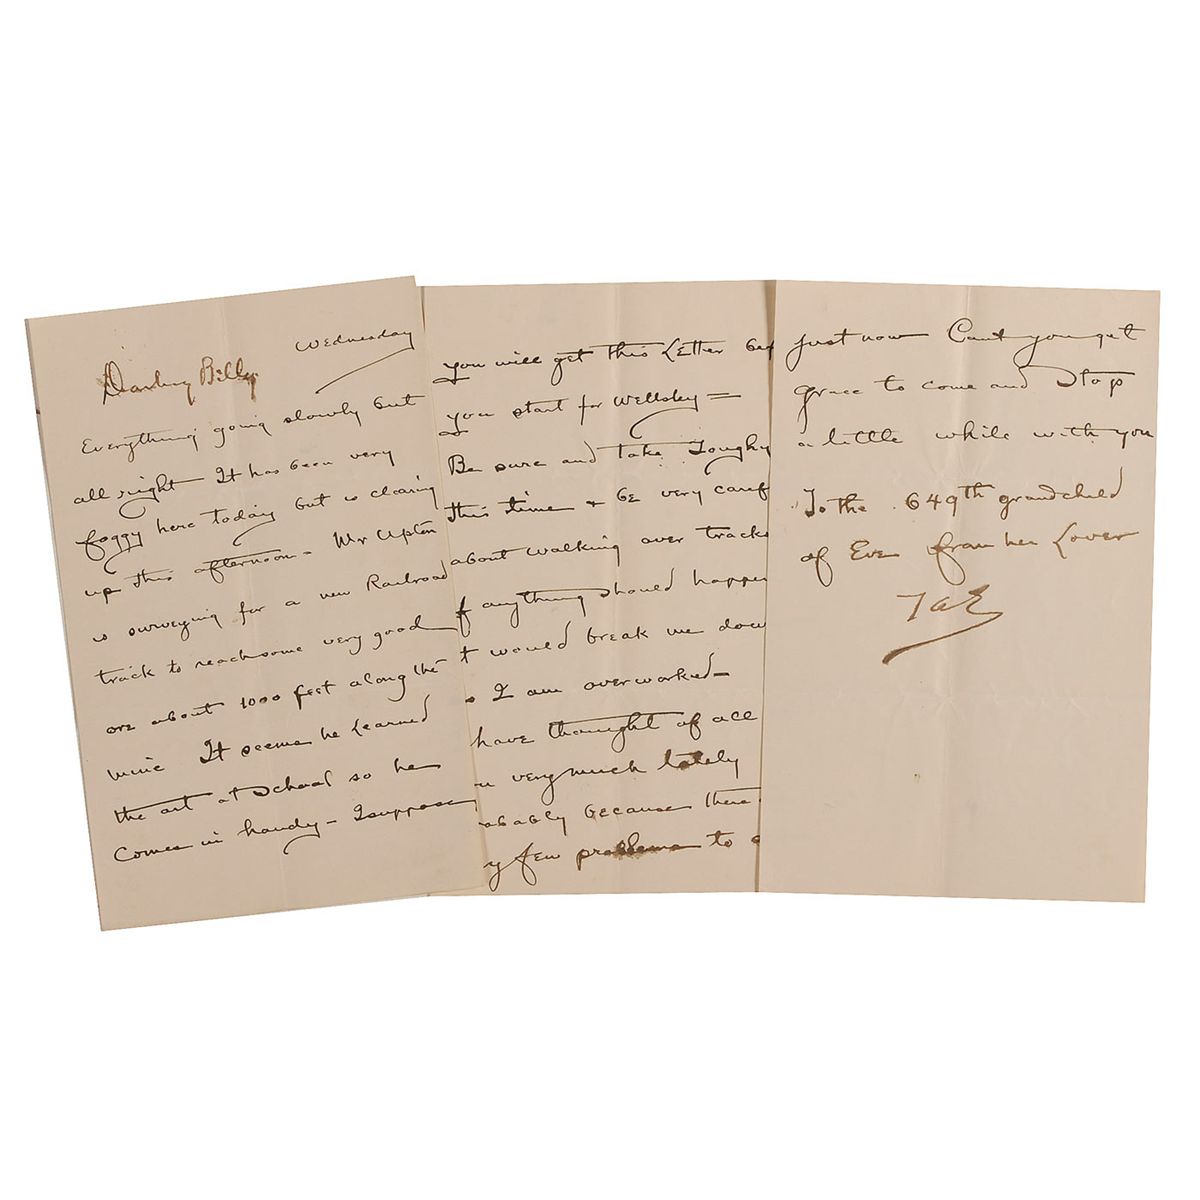 Wednesday
Darling Billy.
Everything going slowly but
all right It has been very
foggy here today but is clearing
up this afternoon - Mr Upton
is surveying for a new Railroad
track to reach some very good
ore about 1000 feet along the
mine It seems he learned
the art at School so he
comes in handy - I suppose
you will get this Letter bef
you start for Wellsley =
Be sure and take Toughy
this time & be very caref
about walking over tracks
f anything should happen
t would break me dow
o I am overworked -
have thought of all
u very much lately
obably because there
y few problems to
just now Cant you get
grace to come and Stop
a little while with you
To the 649th grandchild
of Eve from her Lover
TAE